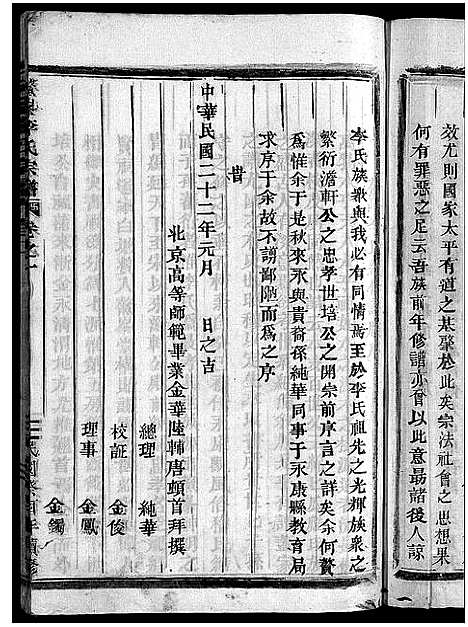 效尤則國家太平有道之基肇於此矣宗法社會之思想果
何有罪惡之足云吾族前年修譜亦曾以此意最諸後人諒
李氏族衆與我必有同情焉至於李氏祖先之光輝族衆之
繁衍澹軒公之忠孝世培公之開宗前序言之詳矣余何贅
爲惟余于是秋來永與貴裔孫純華同事于永康縣教育局
求序于余故不謂鄙陋而爲之序
旹
中華民國二十二年元月 日之吉
北京高等師範畢業金華陸輔唐頓首拜撰
總理 純華
校証 金俊
理事 金鳳
金鐲
李氏宗譜 卷之七
民國癸酉年續修